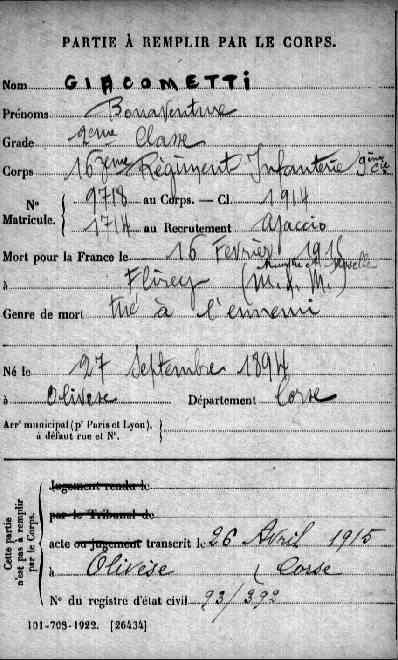 PARTIE À REMPLIR PAR LE CORPS.
Nom GIACOMETTI
Prénoms Bonaventure
Grade 2eme Classe
Corps 16 3eme Régiment Infanterie 9eme Cie
N° Matricule. { 9718 au Corps. — Cl. 1914
1714 au Recrutement Ajaccio
Mort pour la France le 16 Février 1915
Meurthe et Moselle
à Flirey (M. & M.)
Genre de mort tué à l'ennemi
Né le 27 Septembre 1894
à Olivese Département Corse
Arr' municipal (p' Paris et Lyon), à défaut rue et N°. }
Cette partie n'est pas à remplir par le Corps.
Jugement rendu le
par le Tribunal de
acte ou jugement transcrit le 26 Avril 1915
à Olivèse ( Corse
N° du registre d'état civil 93/392
101-708-1922. [26434]